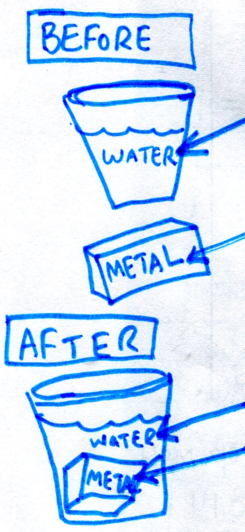 BEFORE
WATER
METAL
AFTER
WATER
METAL